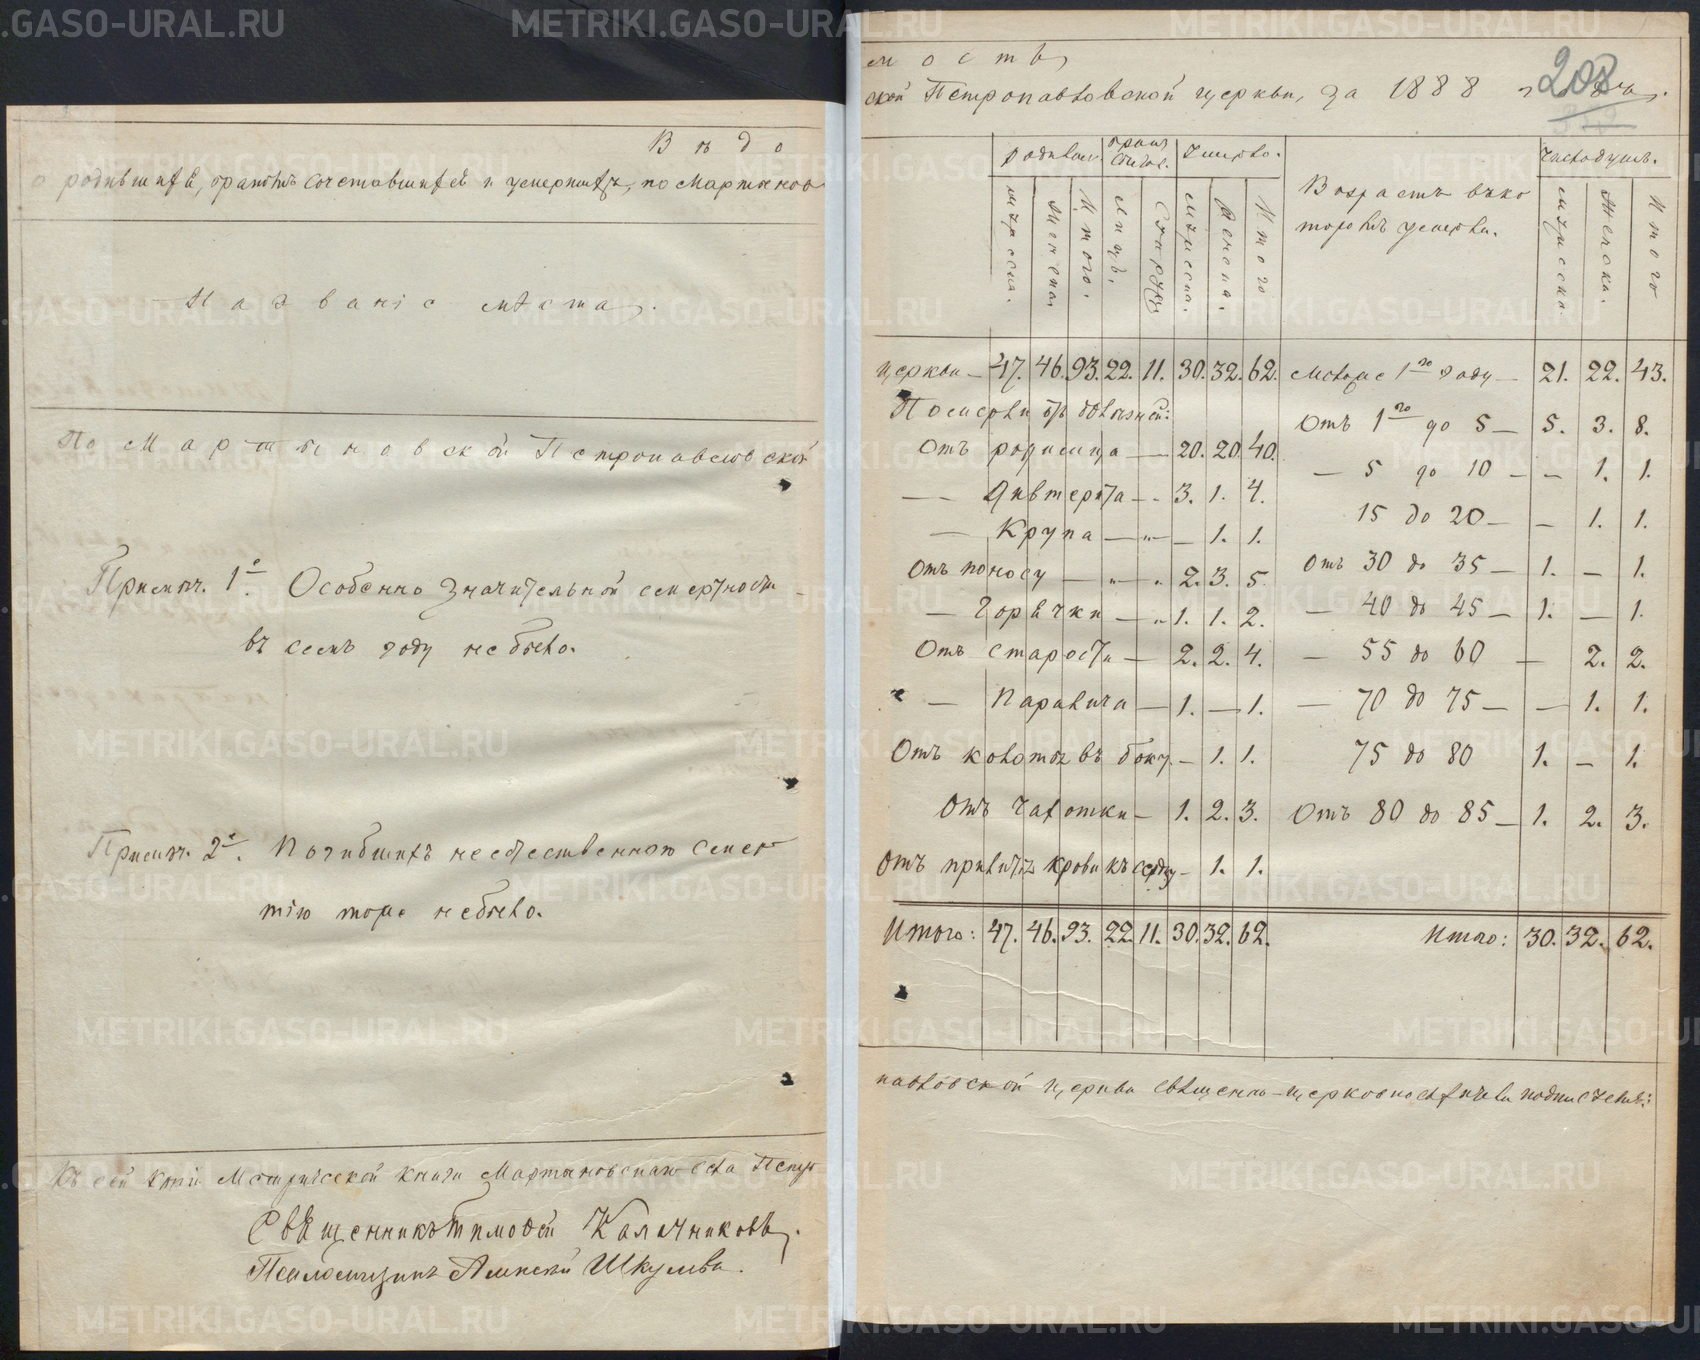 Вѣдо
о родившихся, бракомъ сочетавшихся и умершихъ, по Мартынов
Названіе мѣста.
По Мартыновской Петропавловской
Примѣч. 1е. Особенно значительной смертности
въ семъ году не было.
Примѣч. 2е. Погибшихъ неестественною смер
тію тоже не было.
Къ сей копіи Метрической книги Мартыновскаго села Петро
Священникъ Тимофей Калачниковъ.
Псаломщикъ Алексѣй Шкулевъ.
мость,
ской Петропавловской церкви, за 1888 годъ.
208
родивш. брак. сочет. Умерло. Число душъ.
Возрастъ въ ко
торомъ умерли.
мужеска. женска. Итого. Лицъ. Супруж. мужеска. женска. Итого мужеска. Женска. Итого
церкви – 47. 46. 93. 22. 11. 30. 32. 62. моложе 1го году – 21. 22. 43.
Померли отъ болѣзней: Отъ 1го до 5 – 5. 3. 8.
Отъ родимца – 20. 20. 40. – 5 до 10 – – 1. 1.
– – Дифтерита – 3. 1. 4. 15 до 20 – – 1. 1.
– Крупа – „ – – 1. 1.
Отъ поносу – „ – „ 2. 3. 5. Отъ 30 до 35 – 1. – 1.
– Горячки – „ 1. 1. 2. – 40 до 45 – 1. – 1.
Отъ старости – 2. 2. 4. – 55 до 60 – 2. 2.
„ – Паралича – 1. – 1. – 70 до 75 – – 1. 1.
Отъ колотья въ боку – 1. 1. 75 до 80 1. – 1.
Отъ чахотки – 1. 2. 3. Отъ 80 до 85 – 1. 2. 3.
Отъ прилитія крови къ сердцу – 1. 1.
Итого: 47. 46. 93. 22. 11. 30. 32. 62. Итого: 30. 32. 62.
павловской церкви священно-церковнослужители подписались:
METRIKI.GASO-URAL.RU